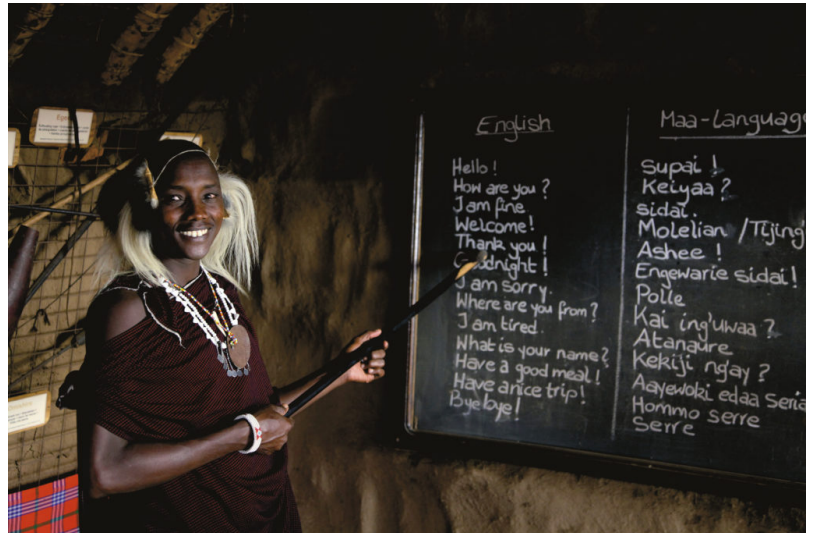 English
Hello !
How are you ?
I am fine
Welcome!
Thank you !
Goodnight !
I am sorry.
Where are you from?
I am tired.
What is your name?
Have a good meal !
Have a nice trip!
Bye bye!
Maa-Language
Supai !
Keiyaa ?
sidai.
Molelian / Tijing'
Ashee !
Engewarie sidai!
Polle
Kai ing'uwaa ?
Atanaure
Kekiji ngay ?
Aayewoki edaa
Hommo serre
Serre